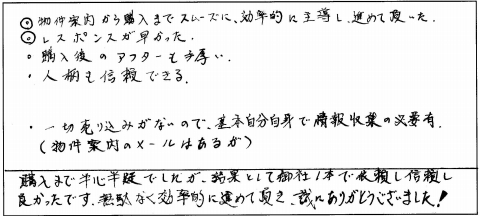 ◉物件案内から購入までスムーズに、効率的に主導し、進めて頂いた。
◉レスポンスが早かった。
・購入後のアフターも手厚い。
・人柄も信頼できる。
・一切売り込みがないので、基本自分自身で情報収集の必要有。
(物件案内のメールはあるが)
購入まで半心半疑でしたが、結果として御社1本で依頼し信頼し
良かったです。無駄なく効率的に進めて頂き、誠にありがとうございました!